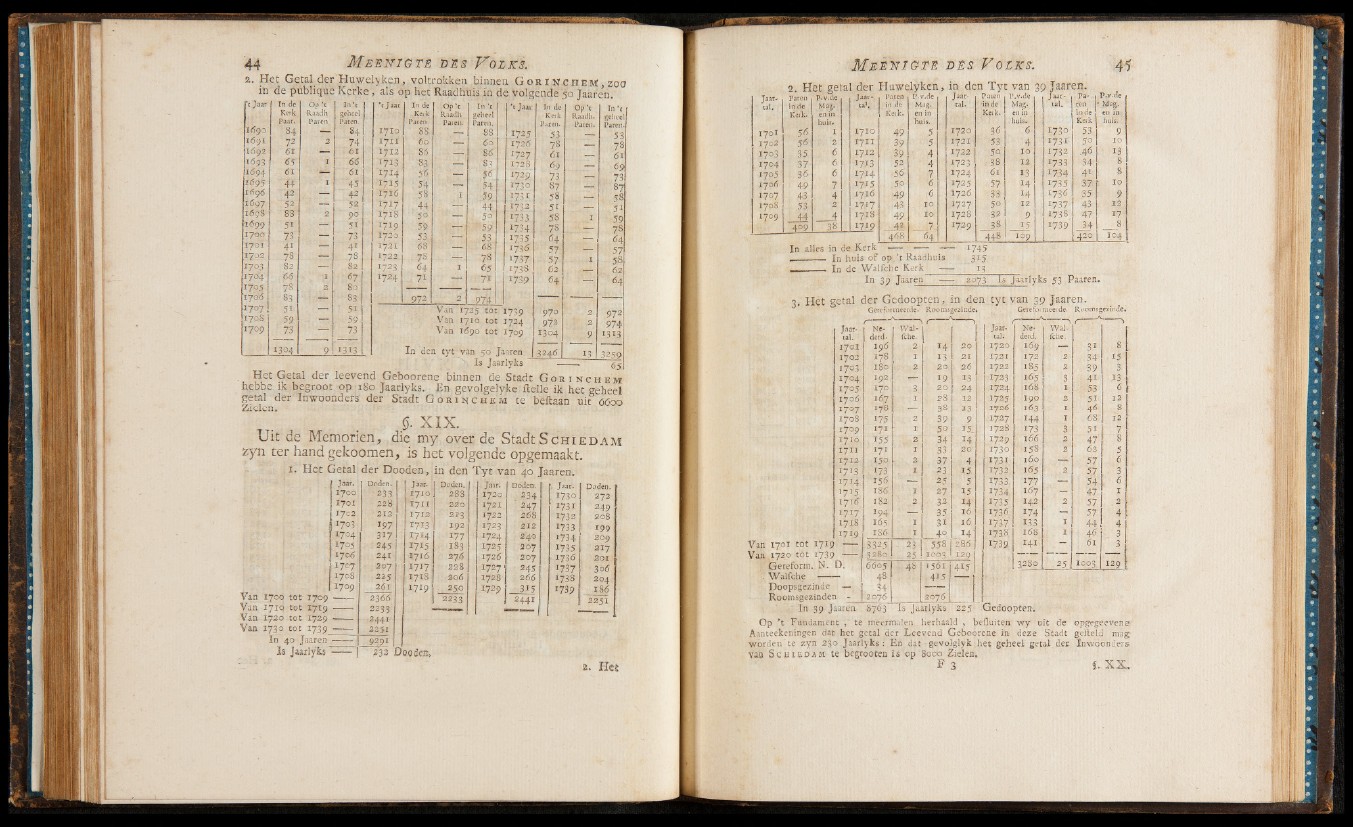 44 MEENIGTE DES VOLKS.
2. Het Getal der Huwelyken, voltrokken binnen GORINCHEM, zoo
in de publique Kerke, als op het Raadhuis in de volgende 50 Jaaren.
't Jaar In de Kerk Paar. Op 't Raadh. Paren In 't geheel Paren. 't Jaar In de Kerk Paren Op 't Raadh. Paren. In 't geheel Paren. 't Jaar In de Kerk Paren. Op 't Raadh. Paren. In 't geheel Paren.
1690 84 — 84 1710 88 — 88 1725 53 — 53
1691 72 2 74 1711 60 — 60 1726 78 — 78
1692 61 — 61 1712 86 — 86 1727 61 — 61
1693 65 1 66 1713 83 — 83 1728 69 — 69
1694 61 — 61 1714 56 — 56 1729 73 — 73
1695 44 1 45 1715 54 — 54 1730 87 — 87
1696 42 — 42 1716 58 1 59 1731 58 — 58
1697 52 — 52 1717 44 — 44 1732 51 — 51
1698 88 2 90 1718 50 — 50 1733 58 1 59
1699 51 — 51 1719 59 — 59 1734 78 — 78
1700 73 — 73 1720 53 — 53 1735 64 — 64
1701 41 — 41 1721 68 — 68 1736 57 — 57
1702 78 — 78 1722 78 — 78 1737 57 1 58
1703 82 — 82 1723 64 1 65 1738 62 — 62
1704 66 1 67 1724 71 — 71 1739 64 — 64
1705 78 2 80
1706 83 — 83 972 2 974
1707 51 — 51 Van 1725 tot 1739 970 2 972
1708 59 — 59 Van 1710 tot 1724 972 2 974
1709 73 — 73 Van 1690 tot 1709 1304 9 1313
1304 9 1313 In den tyt van 50 Jaaren 3246 13 3259
Is Jaarlyks —— 65
Het Getal der leevend Geboorene binnen de Stadt GORINCHEM
hebbe ik begroot op 180 Jaarlyks. En gevolgelyke stelle ik het geheel
getal der Inwoonders der Stadt GORINCHEM te bestaan uit 6600
Zielen.
§. XIX.
Uit de Memorien, die my over de Stadt SCHIEDAM
zyn ter hand gekoomen, is het volgende opgemaakt.
1. Het Getal der Dooden, in den Tyt van 40 Jaaren.
Jaar. Doden. Jaar. Doden. Jaar. Doden. Jaar. Doden.
1700 233 1710 288 1720 234 1730 272
1701 228 1711 220 1721 247 1731 249
1702 212 1712 223 1722 268 1732 208
1703 197 1713 192 1723 212 1733 199
1704 317 1714 177 1724 240 1734 209
1705 245 1715 183 1725 207 1735 217
1706 241 1716 276 1726 207 1736 201
1707 207 1717 228 1727 245 1737 306
1708 225 1718 206 1728 266 1738 204
1709 261 1719 250 1729 315 1739 186
Van 1700 tot 1709 —— 2366 2233 2441 2251
Van 1710 tot 1719 —— 2233
Van 1720 tot 1729 —— 2441
Van 1730 tot 1739 —— 2251
In 40 Jaaren —— 9291
Is Jaarlyks —— 232 Dooden.
2. Het
MEENIGTE DES VOLKS. 45
2. Het getal der Huwelyken, in den Tyt van 39 Jaaren.
Jaar-tal. Paren in de Kerk. P.v.de Mag. en in huis. Jaar-tal. Paren in de Kerk. P.v.de Mag. en in huis. Jaar-tal. Paren in de Kerk. P.v.de Mag. en in huis. Jaar-tal. Paren in de Kerk P.v.de Mag. en in huis.
1701 56 1 1710 49 5 1720 36 6 1730 53 9
1702 56 2 1711 39 5 1721 53 4 1731 50 10
1703 35 6 1712 39 4 1722 50 10 1732 46 13
1704 37 6 1713 52 4 1723 38 12 1733 54 8
1705 36 6 1714 56 7 1724 61 13 1734 41 8
1706 49 7 1715 50 6 1725 57 14 1735 37 10
1707 43 4 1716 49 6 1726 33 14 1736 35 9
1708 53 2 1717 43 10 1727 50 12 1737 43 12
1709 44 4 1718 49 10 1728 32 9 1738 47 17
409 38 1719 42 7 1729 38 15 1739 34 8
468 64 448 109 420 104
In alles in de Kerk —— —— —— 1745
—— In huis of op 't Raadhuis 315
—— In de Walsche Kerk —— 13
In 39 Jaaren —— 2073 Is Jaarlyks 53 Paaren.
3. Het getal der Gedoopten, in den tyt van 39 Jaaren.
Gereformeerde. Roomsgezinde. Gereformeerde. Roomsgezinde.
Jaar-tal. Ne-derd. Wal-sche. Jaar-tal. Ne-derd. Wal-sche.
1701 196 2 14 20 1720 169 — 31 8
1702 178 1 13 21 1721 172 2 34 15
1703 180 2 20 26 1722 185 2 39 5
1704 192 — 19 13 1723 165 5 41 13
1705 170 3 20 24 1724 168 1 53 6
1706 167 1 28 12 1725 190 2 51 12
1707 178 — 38 23 1726 163 1 46 8
1708 175 2 39 9 1727 144 1 68 12
1709 171 1 50 15 1728 173 3 51 7
1710 155 2 34 14 1729 166 2 47 8
1711 171 1 33 20 1730 158 2 62 5
1712 150 2 37 4 1731 160 — 57 6
1713 173 1 23 15 1732 165 2 57 3
1714 156 — 25 5 1733 177 — 54 6
1715 186 1 27 15 1734 167 — 47 1
1716 182 2 32 14 1735 142 2 57 2
1717 194 — 35 16 1736 174 — 57 4
1718 165 1 31 16 1737 133 1 44 4
1719 186 1 40 14 1738 168 1 46 3
Van 1701 tot 1719 —— 3325 23 558 286 1739 141 — 61 3
Van 1720 tot 1739 —— 3280 25 1003 129
Gereform. N. D. 6605 48 1561 415 3280 25 1003 129
Walsche —— 48 415 —
Doopsgezinde — 34
Roomsgezinden - 2076 2076
In 39 Jaaren 8763 Is Jaarlyks 225 Gedoopten.
Op 't Fundament, te meermalen herhaald, besluiten wy uit de opgegeevene
Aanteekeningen dat het getal der Leevend Geboorene in deze Stadt gesteld mag
worden te zyn 230 Jaarlyks: En dat gevolglyk het geheel getal der Inwoonders
van SCHIEDAM te begrooten is op 8000 Zielen.
F 3 §. XX.